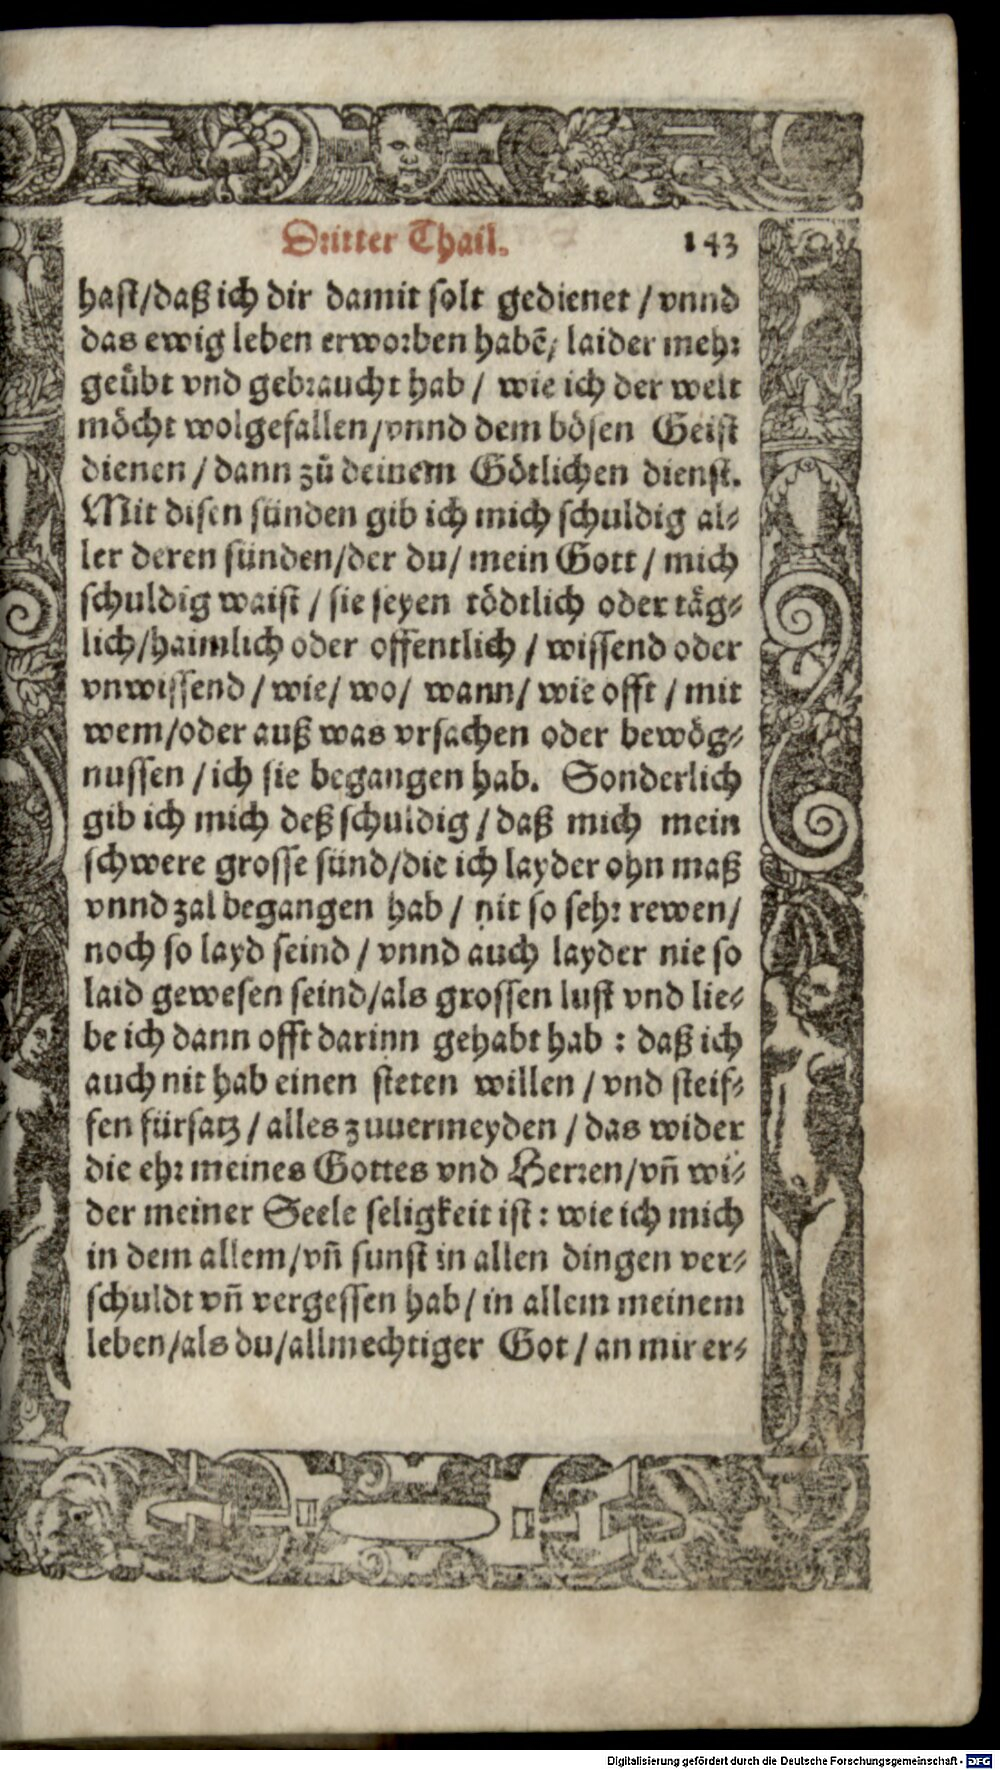 Dritter Thail. 143
hast/daß ich dir damit solt gedienet / vnnd
das ewig leben erworben habẽ/ laider mehr
geübt vnd gebraucht hab / wie ich der welt
möcht wolgefallen/vnnd dem bösen Geist
dienen / dann zů deinem Götlichen dienst.
Mit disen sünden gib ich mich schuldig al-
ler deren sünden/der du/ mein Gott / mich
schuldig waist / sie seyen tödtlich oder täg-
lich/haimlich oder offentlich / wissend oder
vnwissend / wie/ wo/ wann/ wie offt / mit
wem/oder auß was vrsachen oder bewög-
nussen / ich sie begangen hab. Sonderlich
gib ich mich deß schuldig / daß mich mein
schwere grosse sünd/die ich layder ohn maß
vnnd zal begangen hab / nit so sehr rewen/
noch so layd seind / vnnd auch layder nie so
laid gewesen seind/als grossen lust vnd lie-
be ich dann offt darinn gehabt hab : daß ich
auch nit hab einen steten willen / vnd steif-
fen fürsatz / alles zuuermeyden / das wider
die ehr meines Gottes vnd Herren/vñ wi-
der meiner Seele seligkeit ist : wie ich mich
in dem allem/vñ sunst in allen dingen ver-
schuldt vñ vergessen hab/ in allem meinem
leben/als du/allmechtiger Got / an mir er-
Digitalisierung gefördert durch die Deutsche Forschungsgemeinschaft - DFG